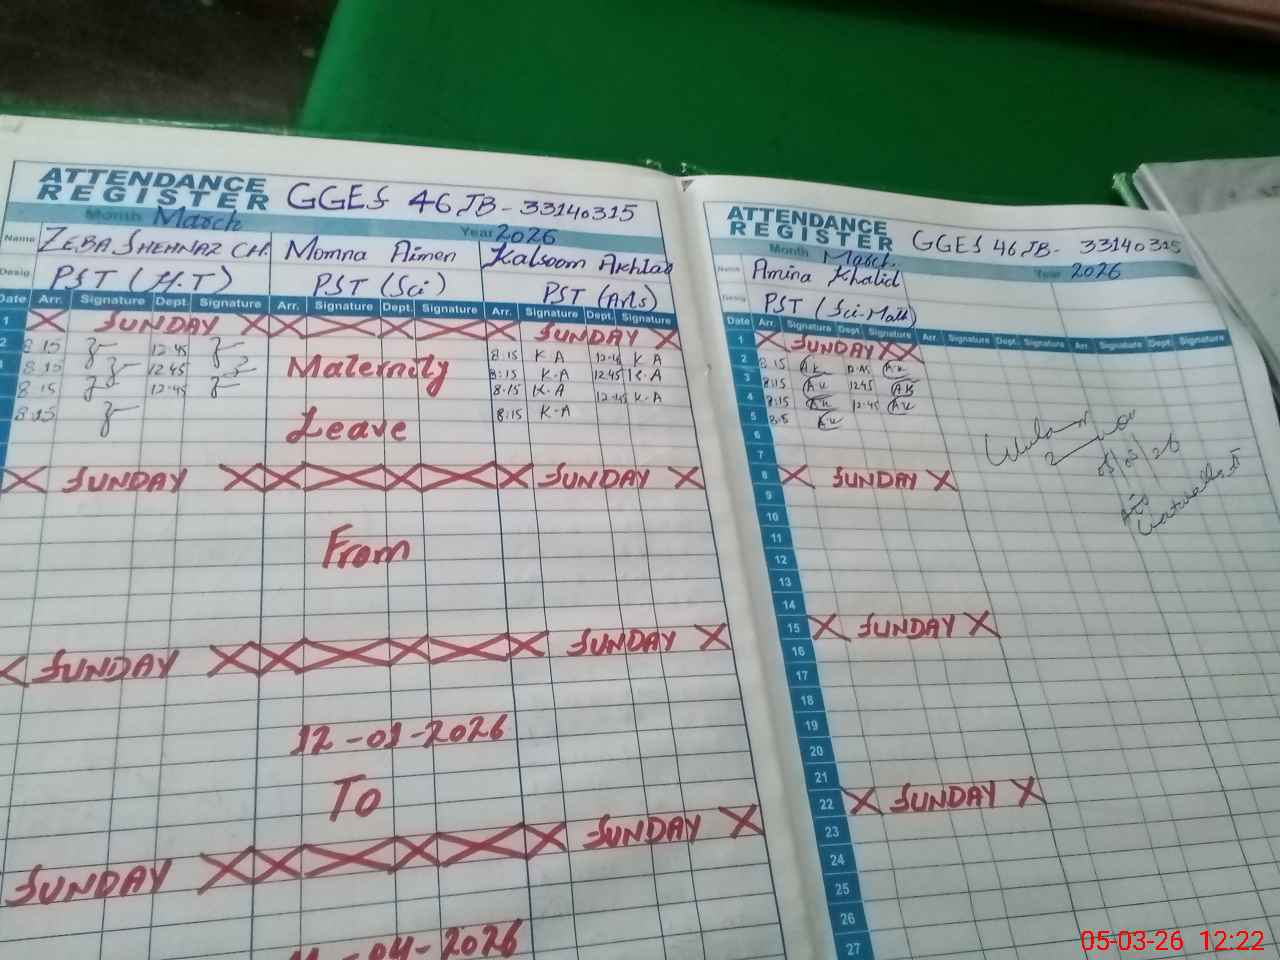 ATTENDANCE
REGISTER GGES 46 JB - 33140315
Month March Year 2026
Name ZEBA SHEHNAZ CH. Momna Aimen Kalsoom Akhtar
Desig PST (H.T) PST (Sci) PST (Arts)
Date Arr. Signature Dept. Signature Arr. Signature Dept. Signature Arr. Signature Dept. Signature
1 SUNDAY SUNDAY
2 8:15 12:45 8:15 K.A 12:45 K.A
8:15 12:45 8:15 K.A 12:45 K.A
8:15 12:45 8:15 K.A 12:45 K.A
8:15 8:15 K.A
Maternity
Leave
SUNDAY SUNDAY
From
SUNDAY SUNDAY
12-01-2026
To
SUNDAY SUNDAY
-04-2026
ATTENDANCE
REGISTER GGES 46 JB - 33140315
Month March. Year 2026
Name Amina Khalid
Desig PST (Sci-Math)
Date Arr. Signature Dept. Signature Arr. Signature Dept. Signature Arr. Signature Dept. Signature
1 SUNDAY
2 8:15 AK 12:45 AK
3 8:15 AK 12:45 AK
4 8:15 AK 12:45 AK
5 8:15 AK
6
7
8 SUNDAY
9
10
11
12
13
14
15 SUNDAY
16
17
18
19
20
21
22 SUNDAY
23
24
25
26
27
05/03/26
05-03-26 12:22